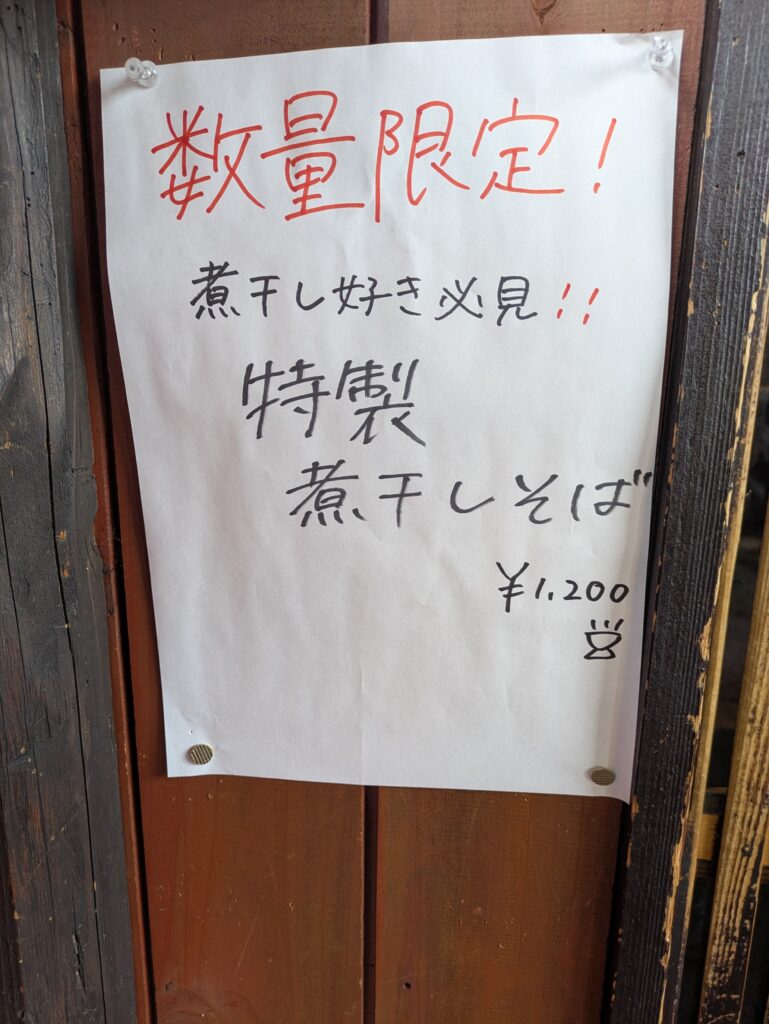 数量限定!
煮干し好き必見!!
特製
煮干しそば
¥1,200